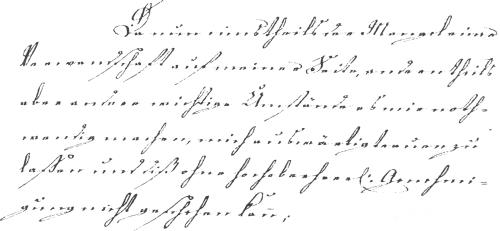 Da nun einestheils der Mangel einer
Verwandschaft auf meiner Seite, anderntheils
aber andere wichtige Umstände es mir noth-
wendig machen, mich auswärtig trauen zu
laßen und dieß ohne hochoberherrl: Genehmi-
gung nicht geschehen kann;